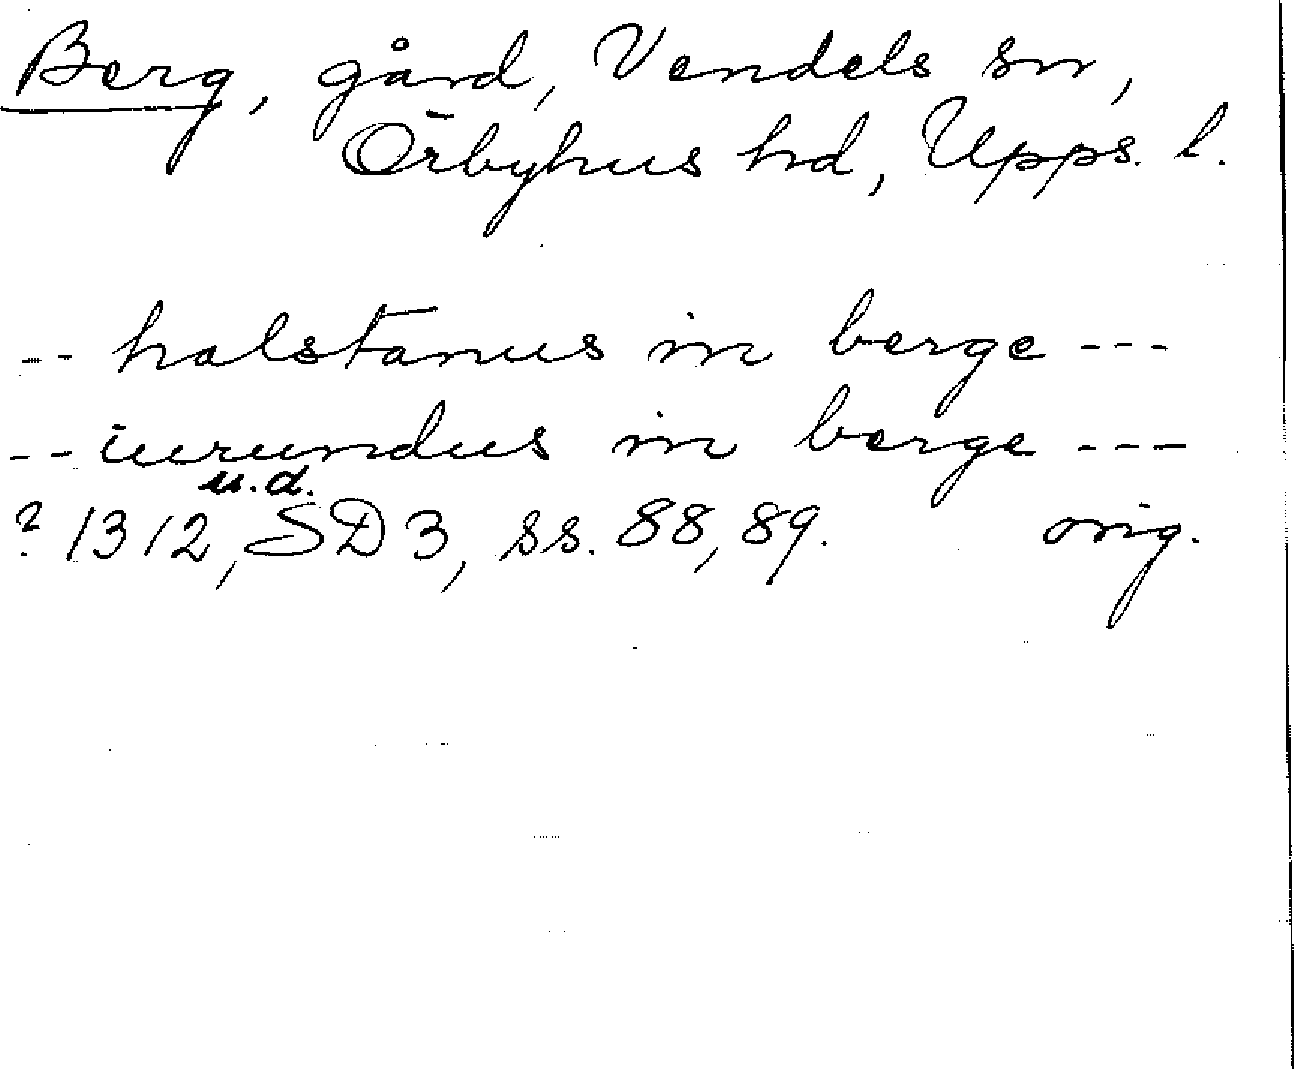 Berg, gård, Vendels sn,
Örbyhus hd, Upps. l.
-- halstanus in berge ---
-- iurundus in berge ---
u.d.
? 1312, SD 3, ss. 88, 89. orig.